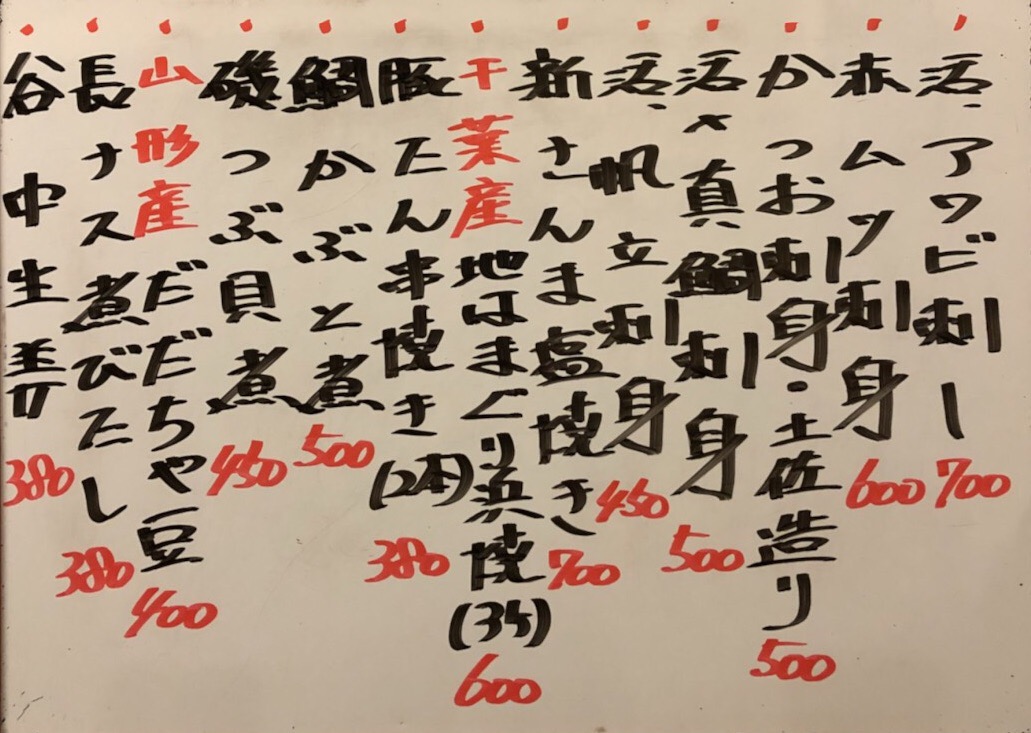 活、アワビ刺し 700
赤ムツ刺身 600
かつお刺身・土佐造り 500
活〆真鯛刺身 500
活、帆立刺身 450
新さんま塩焼き 700
千葉産地はまぐり浜焼(3ケ) 600
豚たん串焼き(2本) 380
鯛かぶと煮 500
磯つぶ貝煮 450
山形産だだちゃ豆 400
長ナス煮びたし 380
谷中生姜 380